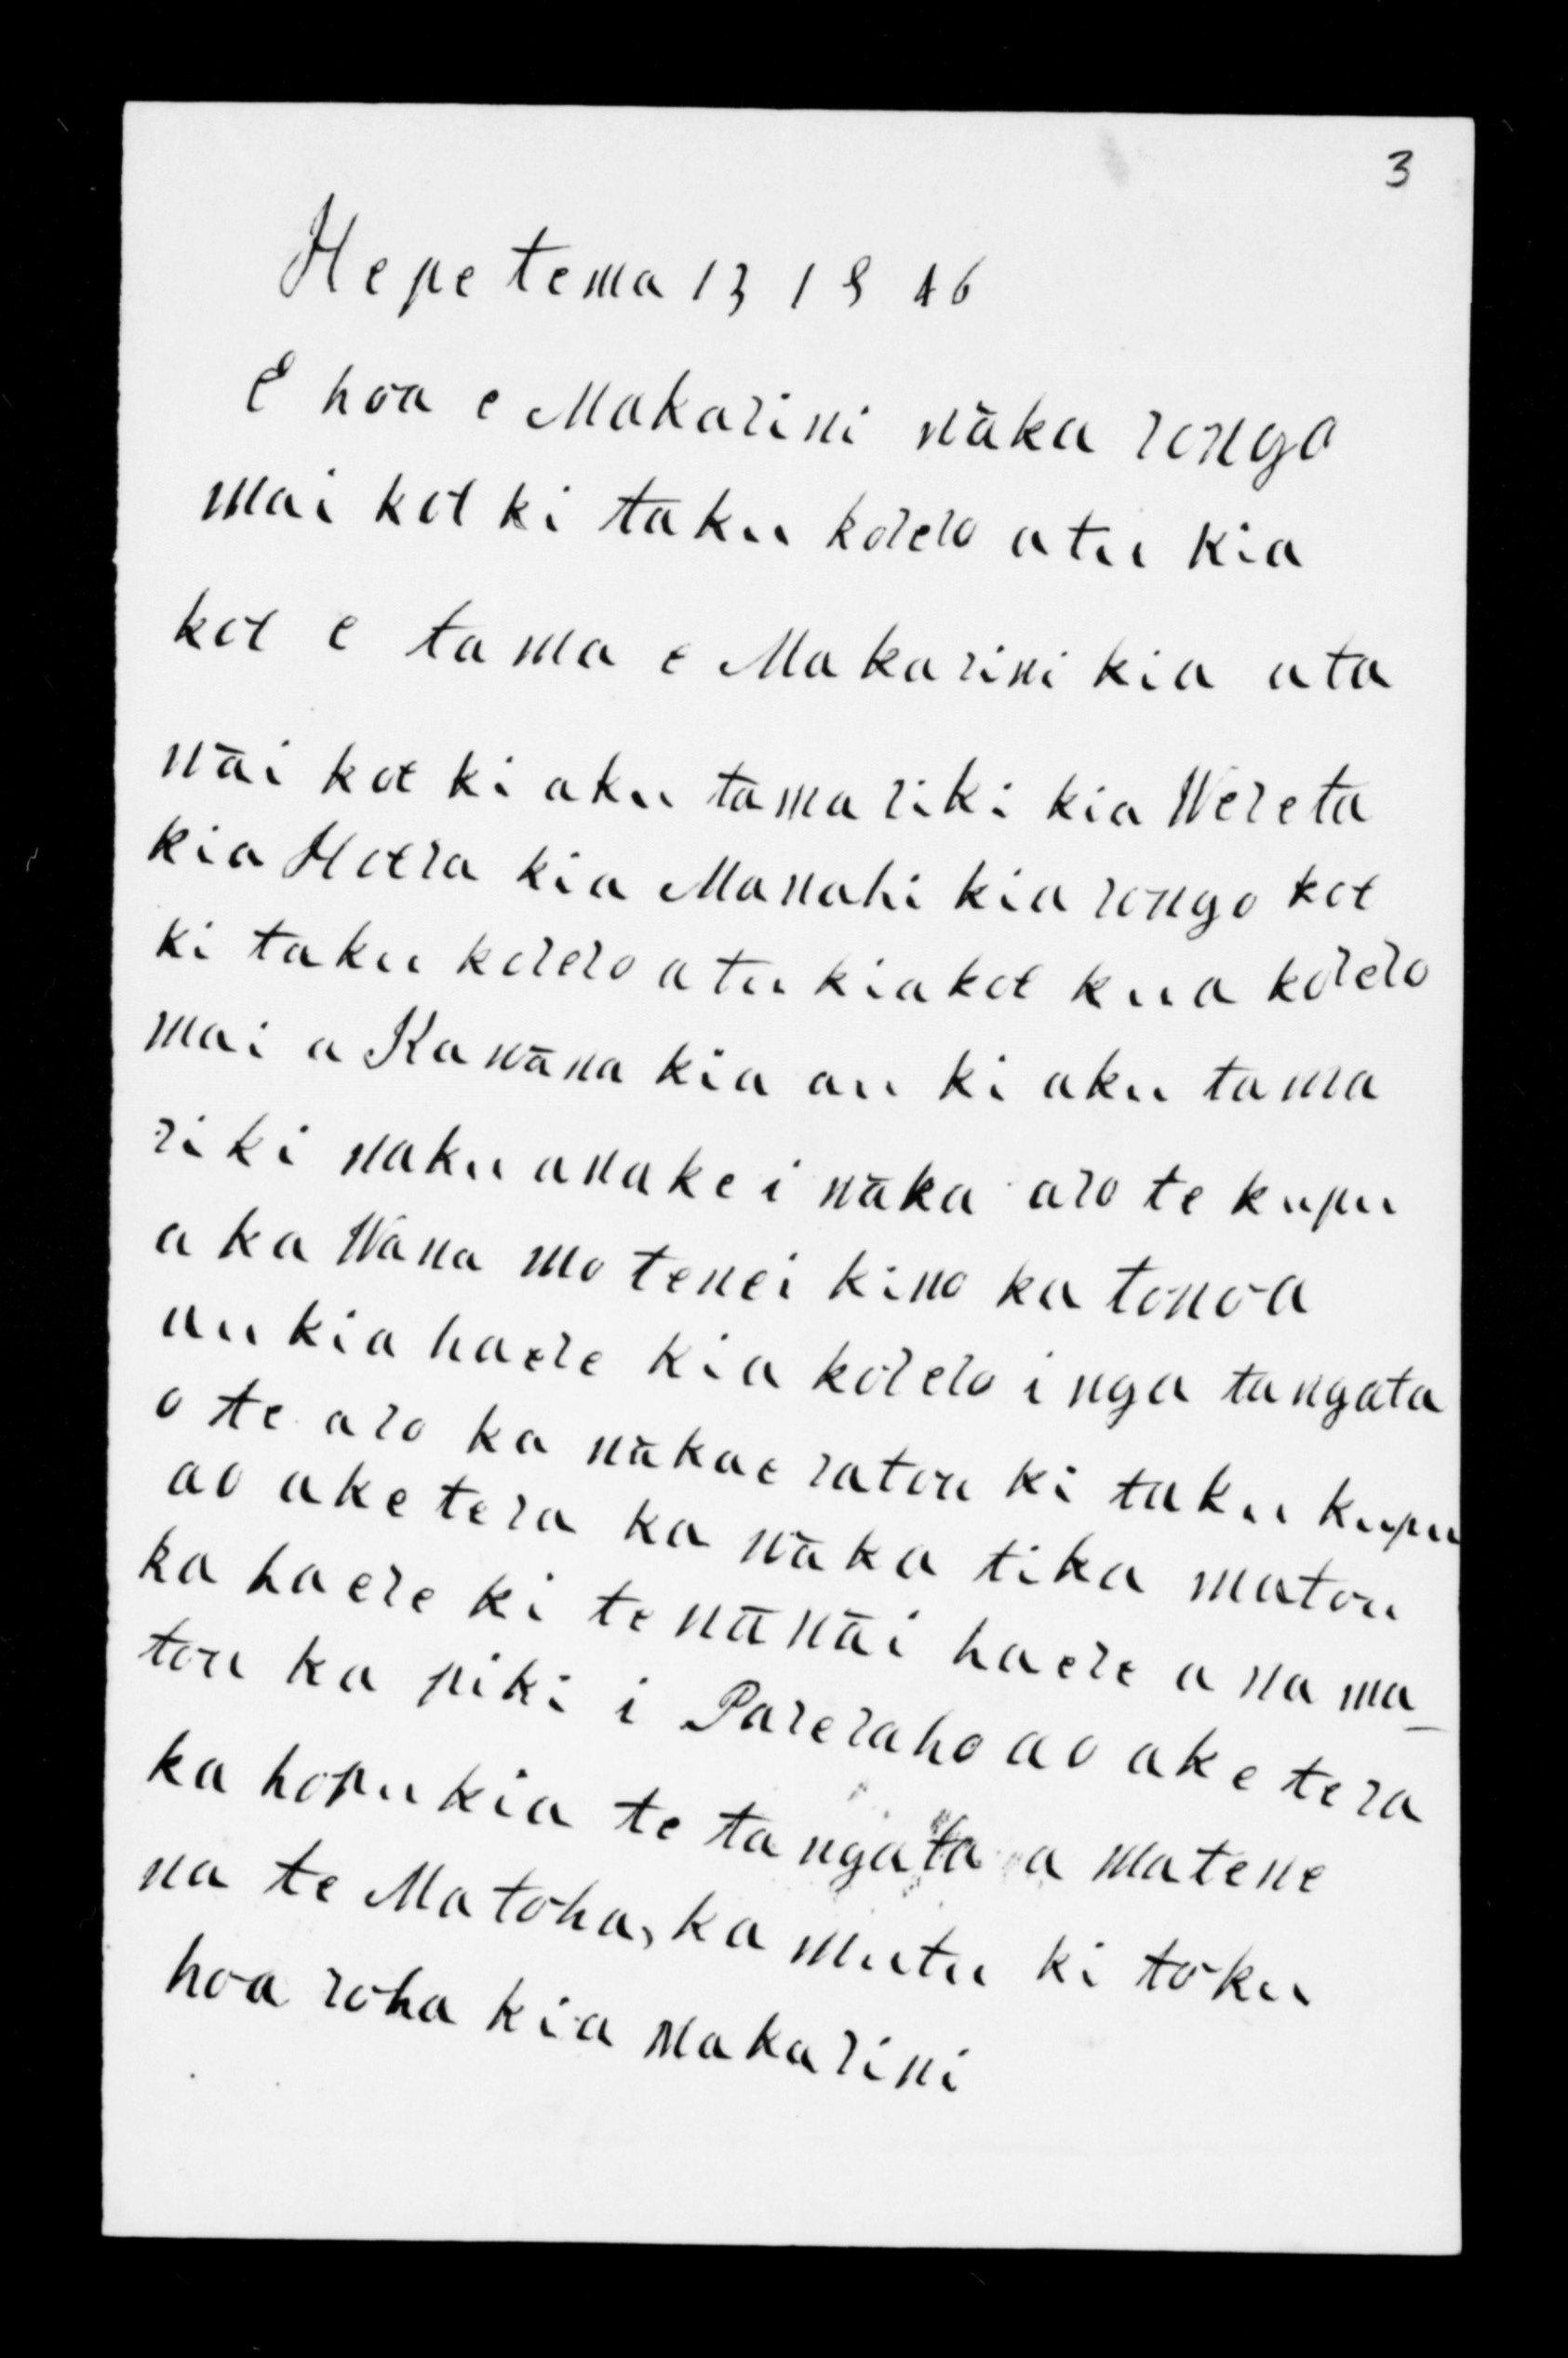 3
Hepetema 13 1846
E hoa e Makarini wāka rongo
mai koe ki taku korero atu kia
koe e tama e Makarini kia ata
wāi koe ki aku tamariki kia Wereta
kia Hoera kia Manahi kia rongo koe
ki taku korero atu kia koe kua korero
mai a Kawāna kia au ki aku tama
riki naku anake i wāka aro te kupu
a ka Wāna mo tenei kino ka tonoa
au kia haere kia korero i nga tangata
o te aro ka wākae ratou ki taku kupu
ao ake tera ka wāka tika matou
ka haere ki te wāwāi haere ana ma_
tou ka piki i Pareraho ao ake tera
ka hopukia te tangata a matene
na te Matoha, ka mutu ki toku
hoa roha kia Makarini